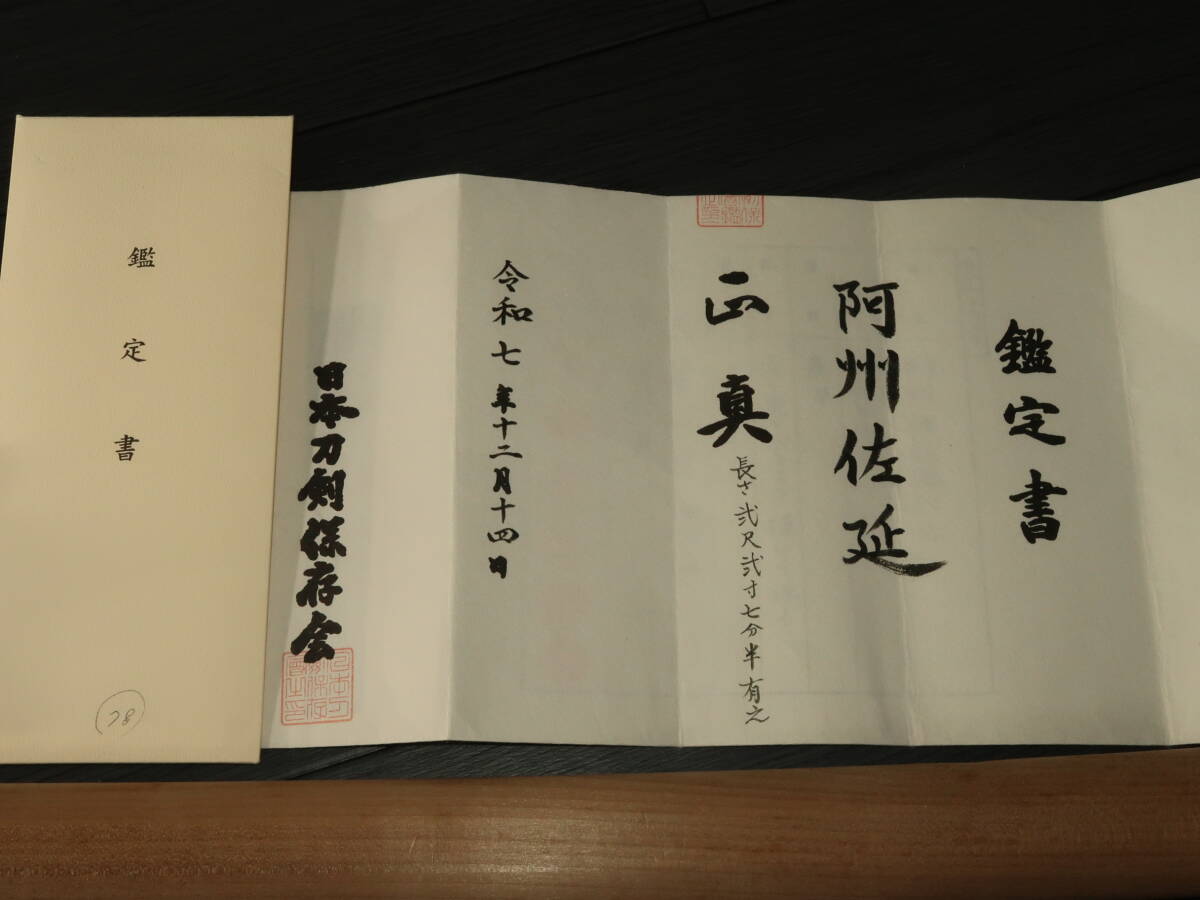 鑑定書
阿州佐延
正真
長さ弐尺弐寸七分半有之
令和七年十二月十四日
日本刀剣保存会
鑑定書
78